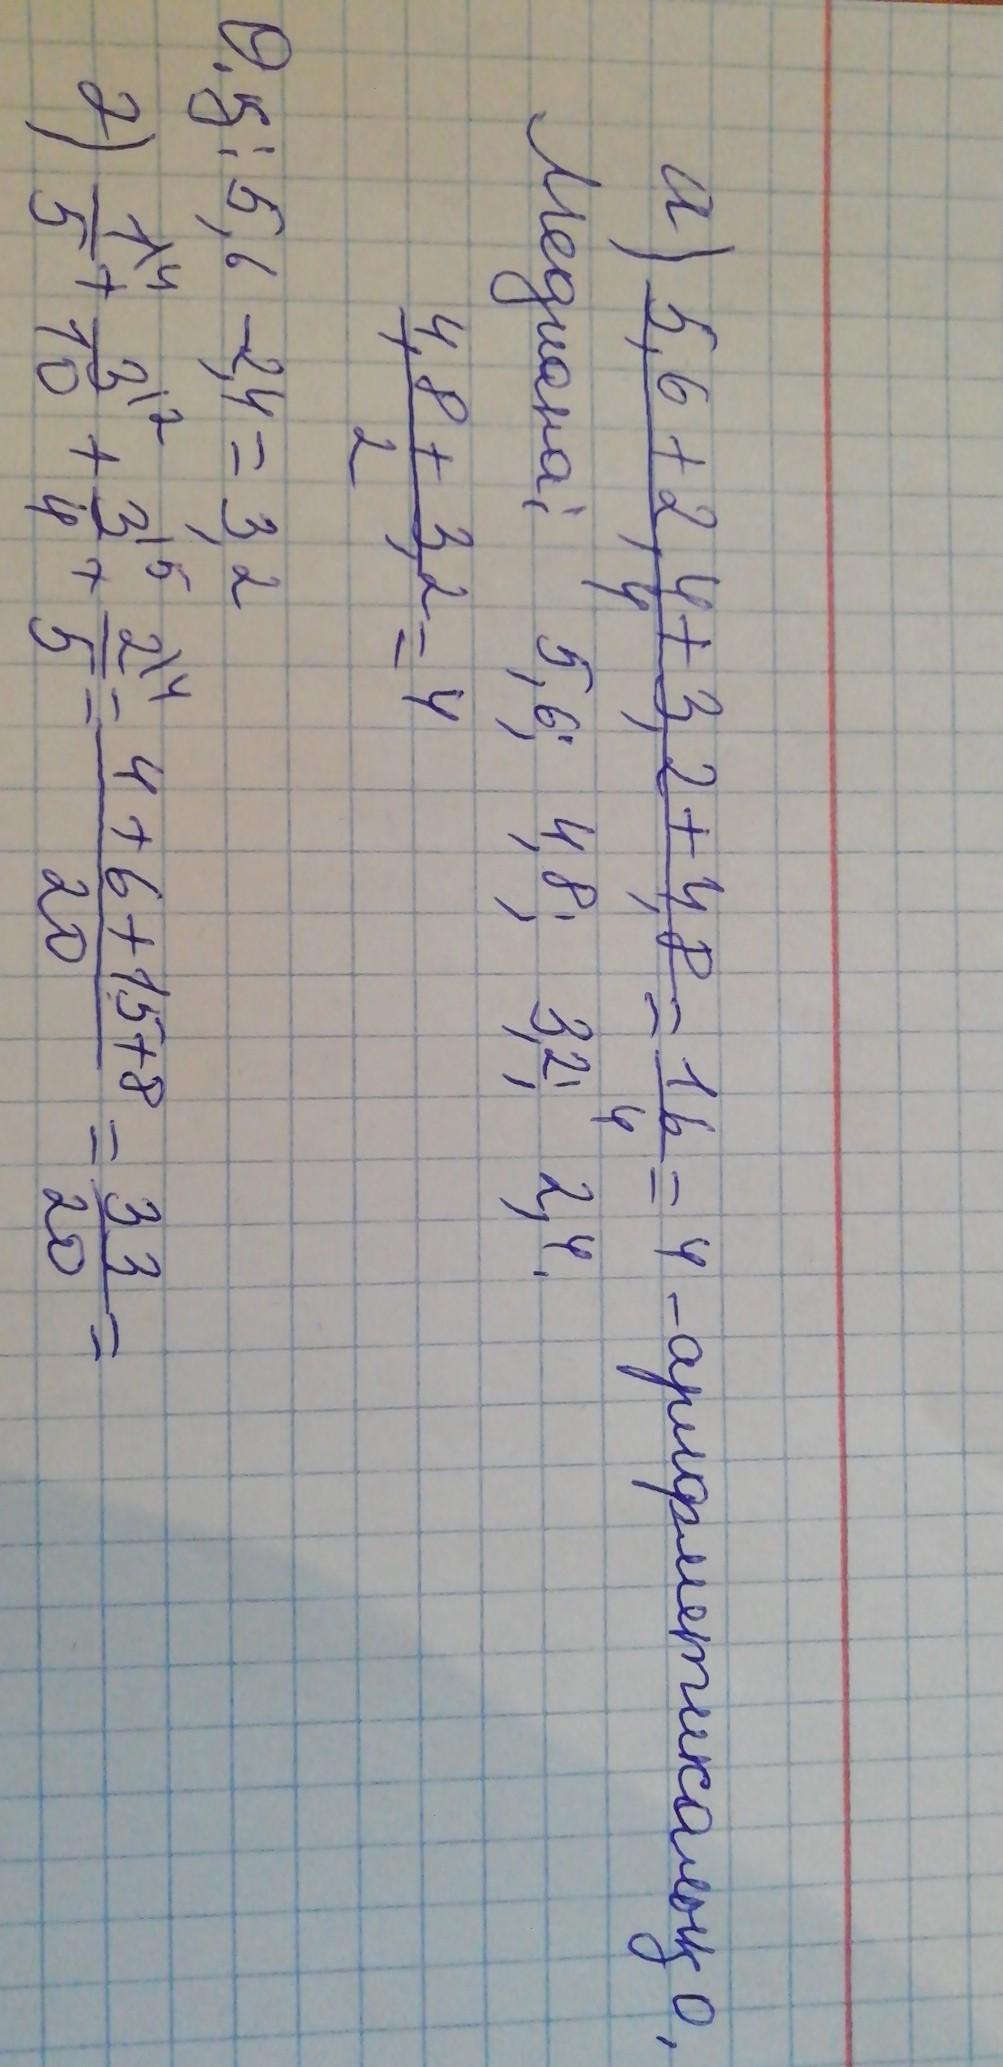 а) (5,6+2,4+3,2+4,8)/4 = 16/4 = 4 - арифметикалық о,
Медиана: 5,6; 4,8; 3,2; 2,4.
(4,8+3,2)/2 = 4
Ө.қ: 5,6 - 2,4 = 3,2
2) 1/5\4 + 3/10\2 + 3/4\5 + 2/5\4 = (4+6+15+8)/20 = 33/20 =